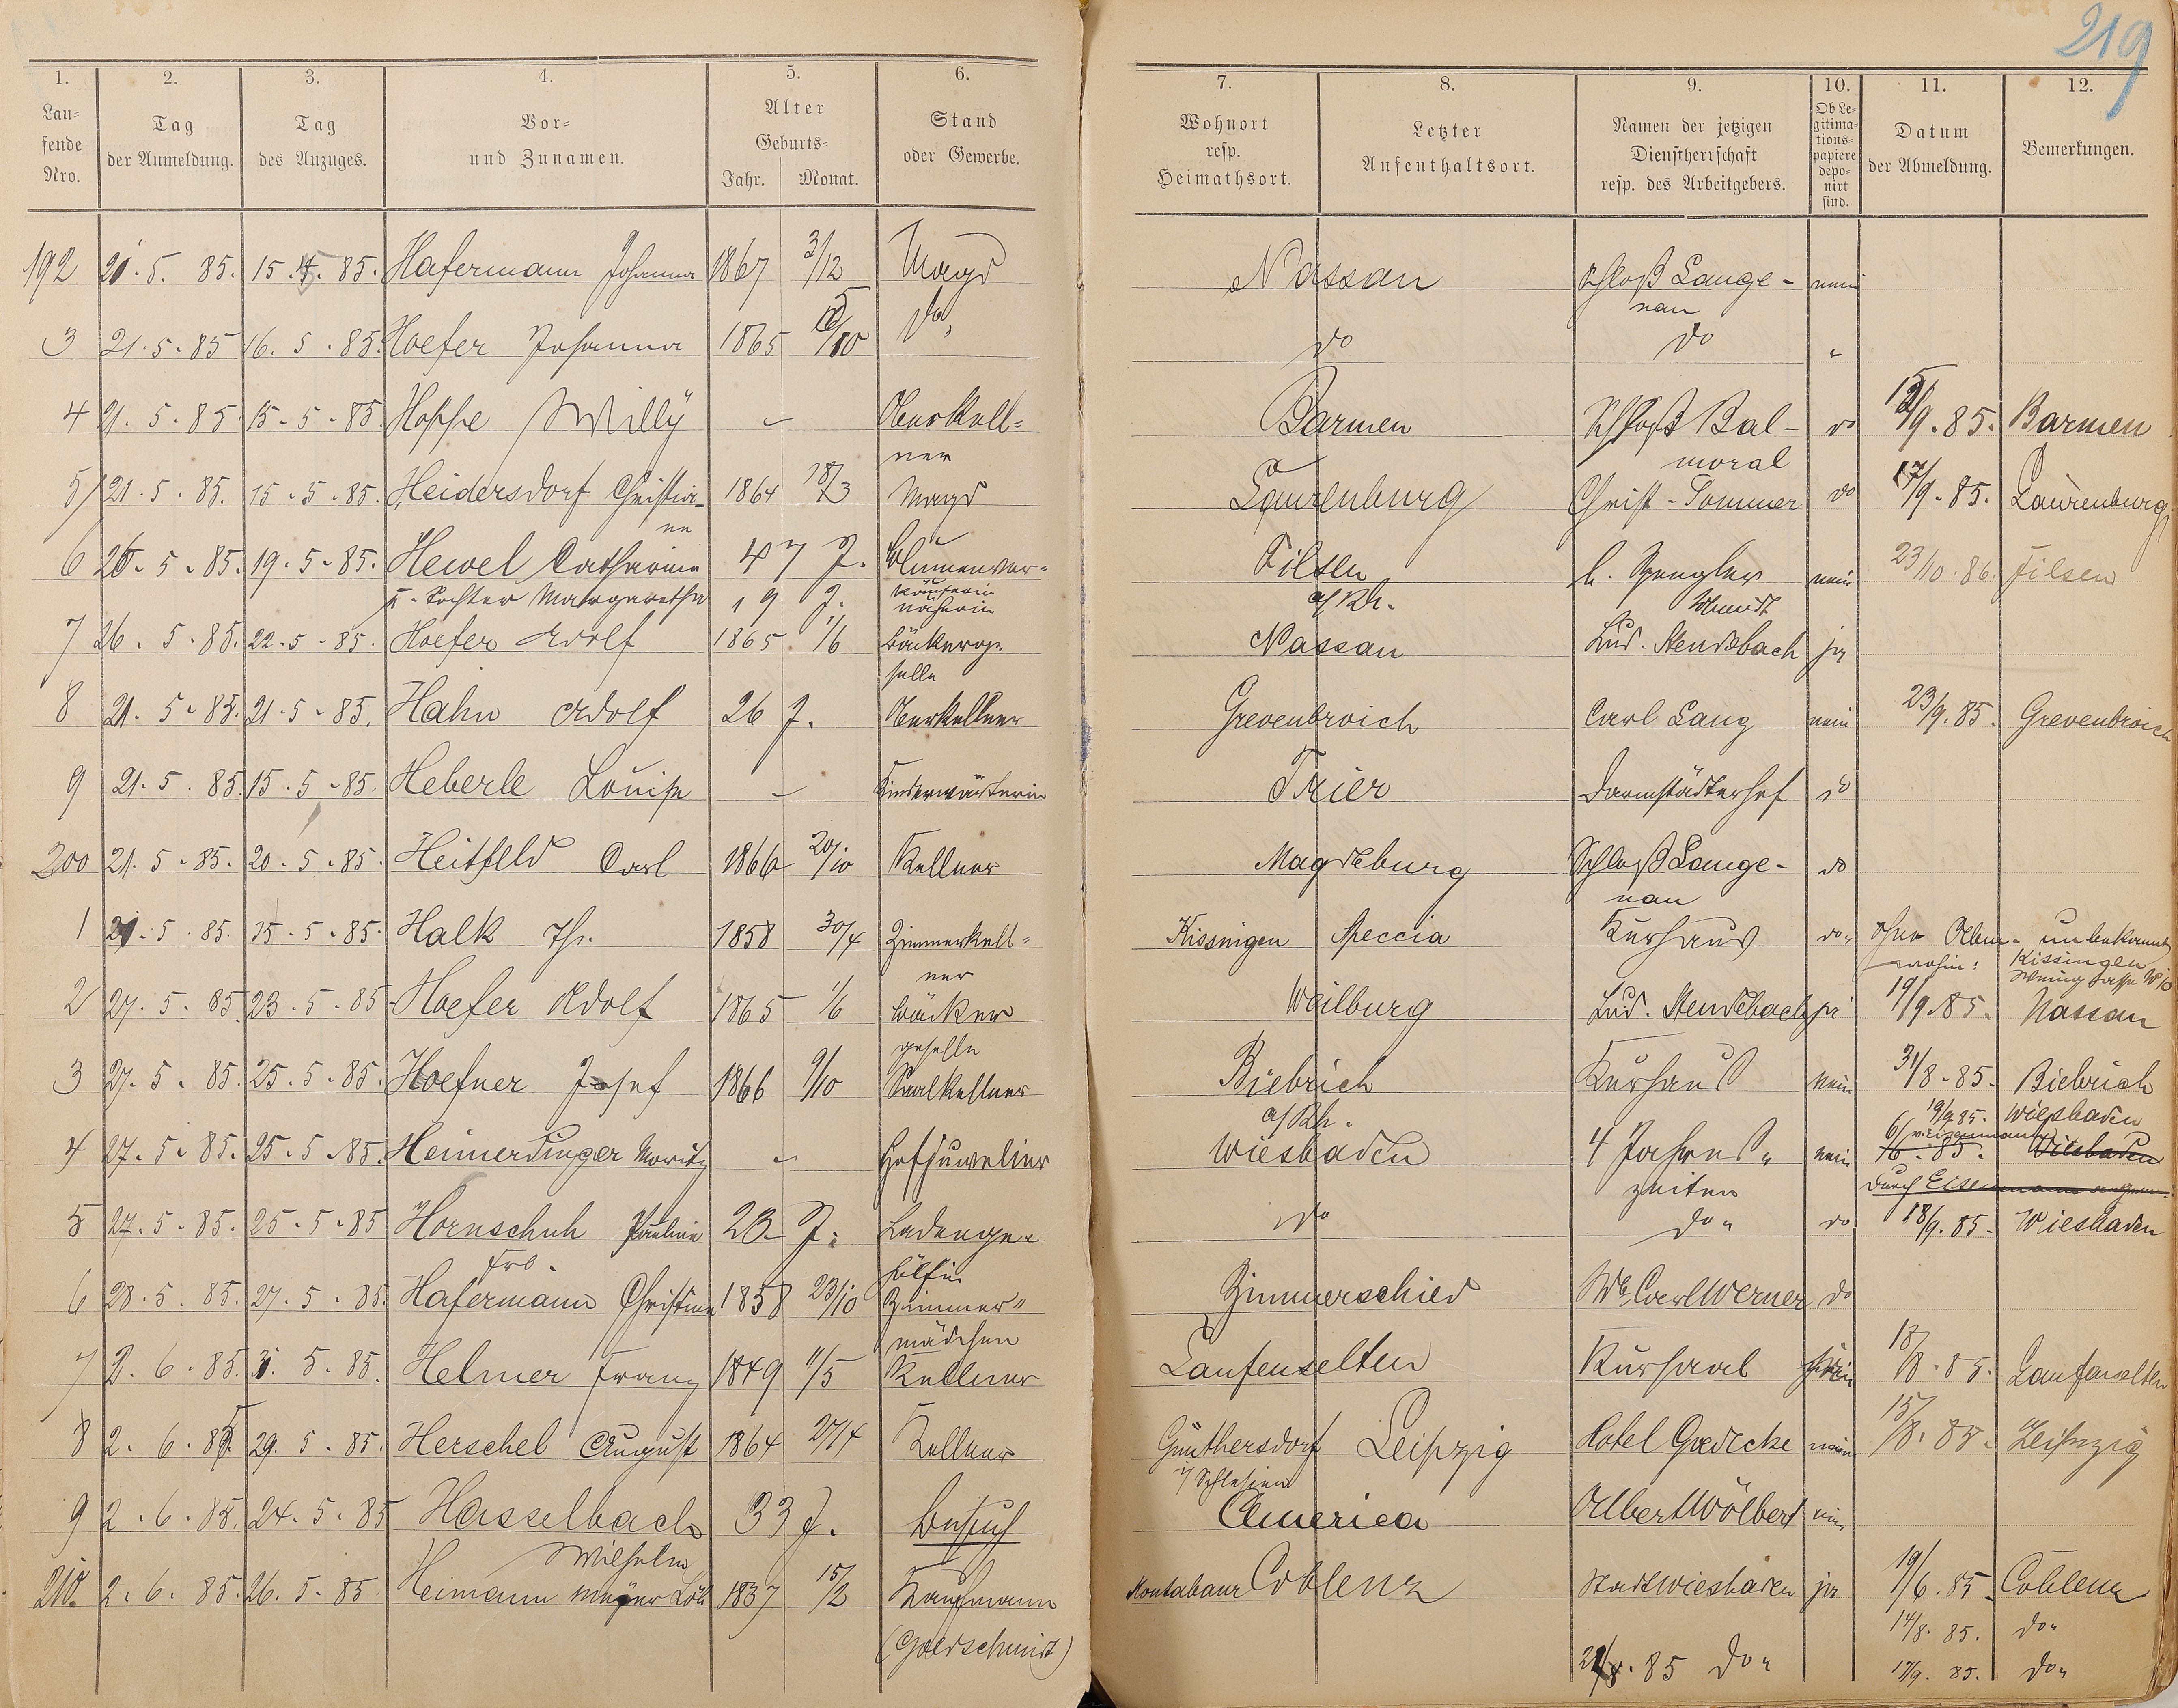 219
1. 2. 3. 4. 5. 6. 7. 8. 9. 10. 11. 12.
Lau-
fende
Nro.
Tag
der Anmeldung.
Tag
des Anzuges.
Vor-
und Zunamen.
Alter
Geburts-
Jahr. Monat.
Stand
oder Gewerbe.
Wohnort
resp.
Heimathsort.
Letzter
Aufenthaltsort.
Namen der jetzigen
Dienstherrschaft
resp. des Arbeitgebers.
Ob Le-
gitima-
tions-
papiere
depo-
nirt
sind.
Datum
der Abmeldung.
Bemerkungen.
192 21. 5. 85. 15. 85. Hafermann Johanna 1867 3/12 Magd Nassau Schloß Lange- nein
nau
3 21. 5. 85 16. 5. 85. Hoefer Johanna 1865 /10 do do do "
4 21. 5. 85 15. 5. 85. Hoppe Willy - Oberkell= Barmen Schloß Bal- do /9. 85. Barmen
ner moral
5 21. 5. 85. 15. 5. 85. Heidersdorf Christia- 1864 18/3 Magd Laurenburg Christ. Sommer do 17/9. 85. Laurenburg
ne
6 26. 5. 85. 19. 5. 85. Hewel Catharina 47 J. Blumenver= Filsen h. Spengler nein 23/10. 86. Filsen
u. Tochter Margaretha 19 J. käuferin a/Rh. Schmidt
näherin
7 26. 5. 85. 22. 5. 85. Hoefer Adolf 1865 1/6 Bäckerge Nassau Lud. Stendebach ja
selle
8 21. 5. 85. 21. 5. 85. Hahn Adolf 26 J. Oberkellner Grevenbroich Carl Lang nein 23/9. 85. Grevenbroich
9 21. 5. 85. 15. 5. 85. Heberle Louise - Kinderwärterin Trier Darmstädterhof do
200 21. 5. 85. 20. 5. 85. Heitfeld Carl 1866 20/10 Kellner Magdeburg Schloß Lange- do
nau
1 21. 5. 85. 15. 5. 85. Halk Th. 1858 30/4 Zimmerkell= Kissingen Speccia Kurhaus do ohne Abm. unbekannt
ner wohin: Kissingen
2 27. 5. 85. 23. 5. 85 Hoefer Adolf 1865 1/6 Bäcker Weilburg Lud. Stendebach ja 19/9. 85. Nassau
geselle
3 27. 5. 85. 25. 5. 85. Hoefner Josef 1866 9/10 Saalkellner Biebrich Kurhaus nein 31/8. 85. Biebrich
a/Rh. 19/9. 85. Wiesbaden
4 27. 5. 85. 25. 5. 85. Heimerdinger Moritz - Hofjuwelier Wiesbaden 4 Jahres" nein 6/ 85. Wiesbaden
zeiten durch Eisenmann
5 27. 5. 85. 25. 5. 85 Hornschuh Pauline 23 J. Ladenge= do do do 18/9. 85. Wiesbaden
Frl. hülfin
6 28. 5. 85. 27. 5. 85. Hafermann Christine 1858 23/10 Zimmer" Zimmerschied Wb. Carl Werner do
mädchen
7 2. 6. 85. 5. 85. Helmer Franz 1849 11/5 Kellner Laufenselten Kursaal nein 18/8. 85. Laufenselten
8 2. 6. 85. 29. 5. 85. Herschel August 1864 27/4 Kellner Günthersdorf Leipzig Hotel Goedecke nein 15/8. 85. Leipzig
i/ Schlesien
9 2. 6. 85. 24. 5. 85 Hasselbach 33 J. Besuch America Albert Wölbert nein
Wilhelm
210. 2. 6. 85. 26. 5. 85 Heimann Mayer Löb 1837 15/2 Kaufmann Montabaur Coblenz Stadt Wiesbaden ja 19/6. 85. Coblenz
(Goldschmidt) 14/8. 85. do"
85 do" 17/9. 85. do"